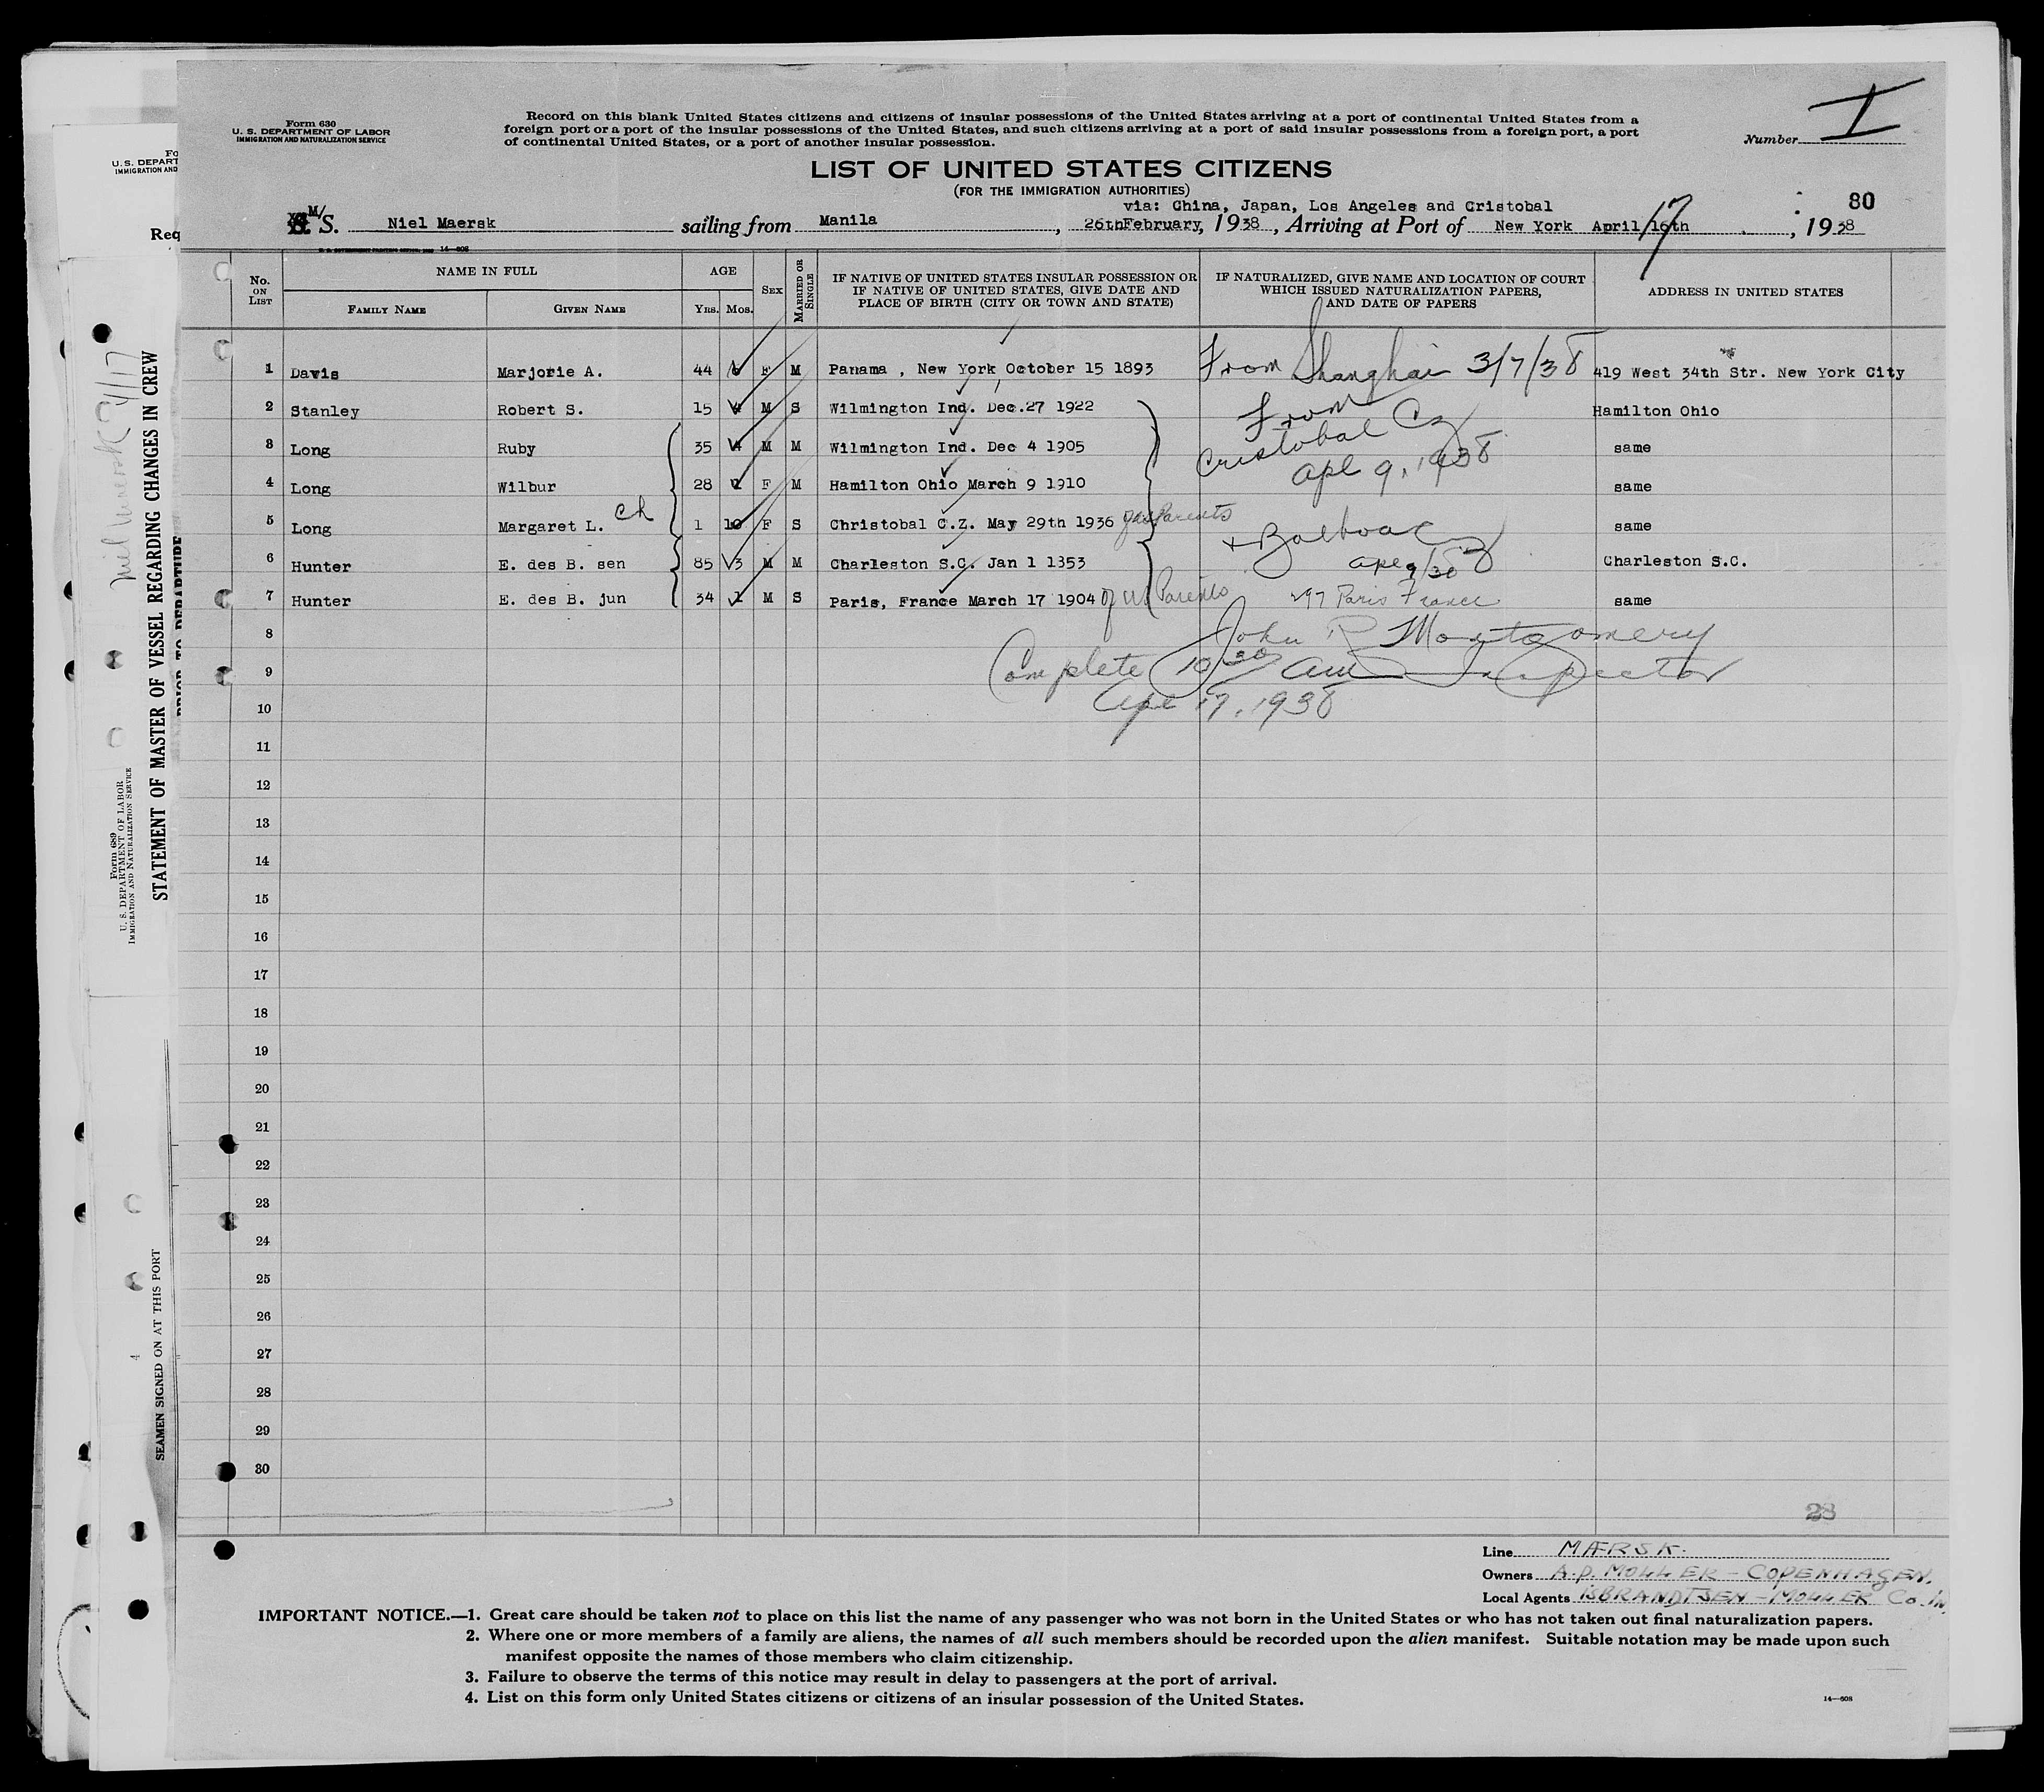 Form 630
U. S. DEPARTMENT OF LABOR
IMMIGRATION AND NATURALIZATION SERVICE
Record on this blank United States citizens and citizens of insular possessions of the United States arriving at a port of continental United States from a
foreign port or a port of the insular possessions of the United States, and such citizens arriving at a port of said insular possessions from a foreign port, a port
of continental United States, or a port of another insular possession.
Number I
LIST OF UNITED STATES CITIZENS
(FOR THE IMMIGRATION AUTHORITIES)
via: China, Japan, Los Angeles and Cristobal
80
M/S. Niel Maersk sailing from Manila, 26th February, 1938, Arriving at Port of New York April 16th 17, 1938
14—608
No. ON LIST
NAME IN FULL
FAMILY NAME
GIVEN NAME
AGE
YRS. MOS.
SEX
MARRIED OR SINGLE
IF NATIVE OF UNITED STATES INSULAR POSSESSION OR
IF NATIVE OF UNITED STATES, GIVE DATE AND
PLACE OF BIRTH (CITY OR TOWN AND STATE)
IF NATURALIZED, GIVE NAME AND LOCATION OF COURT
WHICH ISSUED NATURALIZATION PAPERS,
AND DATE OF PAPERS
ADDRESS IN UNITED STATES
1 Davis Marjorie A. 44 F M Panama , New York, October 15 1893 From Shanghai 3/7/38 419 West 34th Str. New York City
2 Stanley Robert S. 15 4 M S Wilmington Ind. Dec.27 1922 From Hamilton Ohio
3 Long Ruby 35 4 M M Wilmington Ind. Dec 4 1905 Cristobal Cz same
4 Long Wilbur 28 F M Hamilton Ohio March 9 1910 Apl 9, 1938 same
5 Long Margaret L. ch 1 10 F S Christobal C.Z. May 29th 1936 Parents same
+ Balboa Cz
6 Hunter E. des B. sen 85 3 M M Charleston S.C. Jan 1 1853 Charleston S.C.
7 Hunter E. des B. jun 34 1 M S Paris, France March 17 1904 of US Parents Paris France same
8 John R Montgomery
9 Complete 10 30 am Inspector
10 Apl 17, 1938
11
12
13
14
15
16
17
18
19
20
21
22
23
24
25
26
27
28
29
30
23
Line MÆRSK.
Owners A.P. MOLLER - COPENHAGEN.
Local Agents ISBRANDTSEN - MOLLER Co. IN.
IMPORTANT NOTICE.—1. Great care should be taken not to place on this list the name of any passenger who was not born in the United States or who has not taken out final naturalization papers.
2. Where one or more members of a family are aliens, the names of all such members should be recorded upon the alien manifest. Suitable notation may be made upon such
manifest opposite the names of those members who claim citizenship.
3. Failure to observe the terms of this notice may result in delay to passengers at the port of arrival.
4. List on this form only United States citizens or citizens of an insular possession of the United States.
14—608
U. S. DEPART
IMMIGRATION AND
Req
Niel Maersk 4/17
STATEMENT OF MASTER OF VESSEL REGARDING CHANGES IN CREW
PRIOR TO DEPARTURE
Form 689
U. S. DEPARTMENT OF LABOR
IMMIGRATION AND NATURALIZATION SERVICE
SEAMEN SIGNED ON AT THIS PORT
4